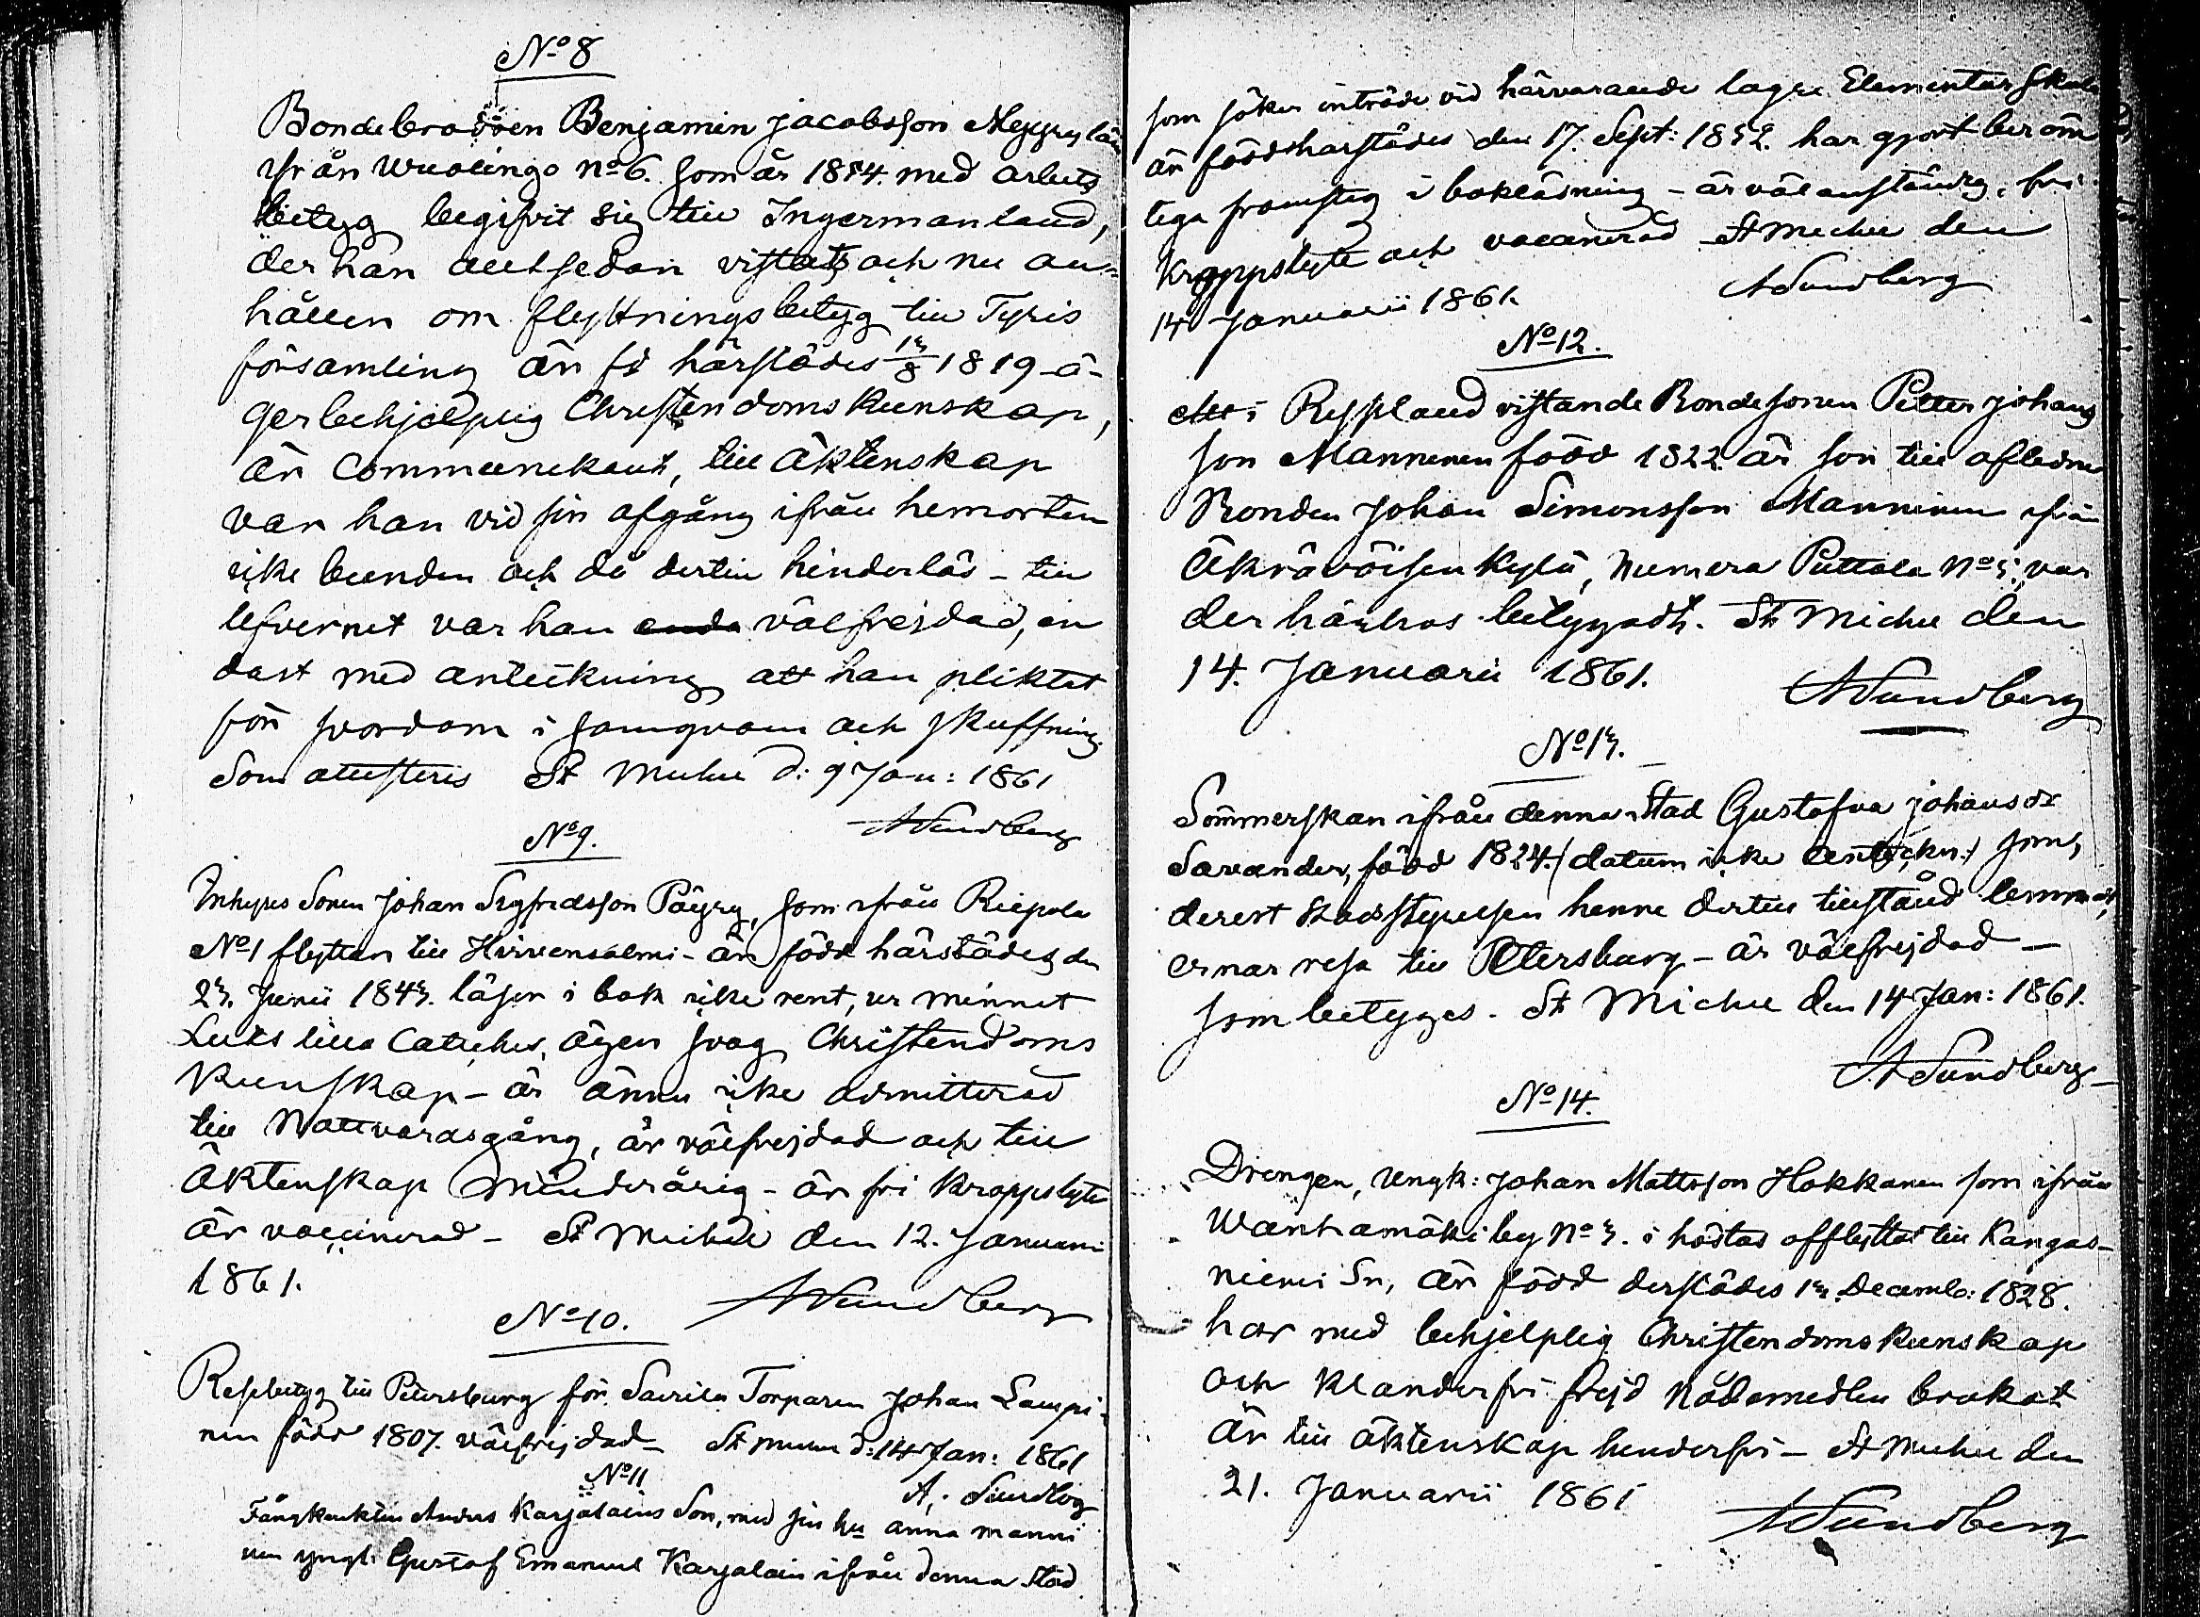 No 8
Bondebrodren Benjamin Jacobsson Mäyryläin
ifrån Wuolingo No 6. som år 1854. med arbets
betyg begifvit sig till Ingermanland,
der han alltsedan vistats och nu an-
hållen om flyttningsbetyg till Tyris
församling är fd härstädes 13/8 1819 - ä-
ger behjelplig Christendomskunskap,
är communikant, till äktenskap
var han vid sin afgång ifrån hemorten
icke bunden och då dertill hinderlös - till
lefvernet var han välfrejdad, en
dast med anteckning att han pliktat
för svordom i samqvam och skuffning.
Som attesteris St Michel d: 9 Jan: 1861
ASundberg
No 9.
Inhyses Sonen Johan Sigfredsson Päyry, som ifrån Riepola
No 1 flyttar till Hirvensalmi - är född härstädes den
23. Junii 1843. läser i bok icke rent, ur minnet
Luts lilla Cateches, äger svag Christendoms
kunskap - är ännu icke admitterad
till Nattvardsgång, är välfrejdad och till
Äktenskap minderårig - är fri kroppslyte
är vaccinerad - St Michel den 12. Januarii
1861.
ASundberg
No 10.
Respbetyg till Petersburg för Sairila Torparen Johan Lampi-
nen född 1807. välfrejdad - St Michel d: 14 Jan: 1861
A. Sundbg
No 11
Fångknekten Anders Karjalains Son, med sin hu Anna Manni
nen yngl: Gustaf Emanuel Karjalain ifrån denna Stad
som söker inträde vid härvarande lagre Elementar Skola
är född härstädes den 17. Sept: 1852. har gjort beröm
liga framsteg i bokläsning - är välanständig, fri
Kroppslyte och vaccinerad - St Michel den
14 Januarii 1861.
ASundberg
No 12.
Att i Ryssland vistande Bondesonen Petter Johans
son Manninen född 1822 är son till afledne
Bonden Johan Simonsson Manninen ifrån
Äkrävöisenkylä, numera Puttola No 5; var
der härhos betygadt. St Michel den
14. Januarii 1861.
ASundberg
No 13.
Sömmerskan ifrån denna Stad Gustafva Johansdr
Savander, född 1824. (datum icke anteckn:) som,
derest Stadsstyrelsen henne dertill tillstånd lemnat,
ernar resa till Petersburg - är välfrejdad -
som betygges. St Michel den 14 Jan: 1861.
ASundberg
No 14.
Drengen, Ungk: Johan Mattsson Hokkanen som ifrån
Wanhamäki by No 3. i höstas afflyttat till Kangas-
niemi Sn, är född derstädes 13. Decemb: 1828.
har med behjelplig Christendomskunskap
och klanderfri frejd Nådemedlen brukat
är till äktenskap hinderfri - St Michel den
21. Januarii 1861
ASundberg